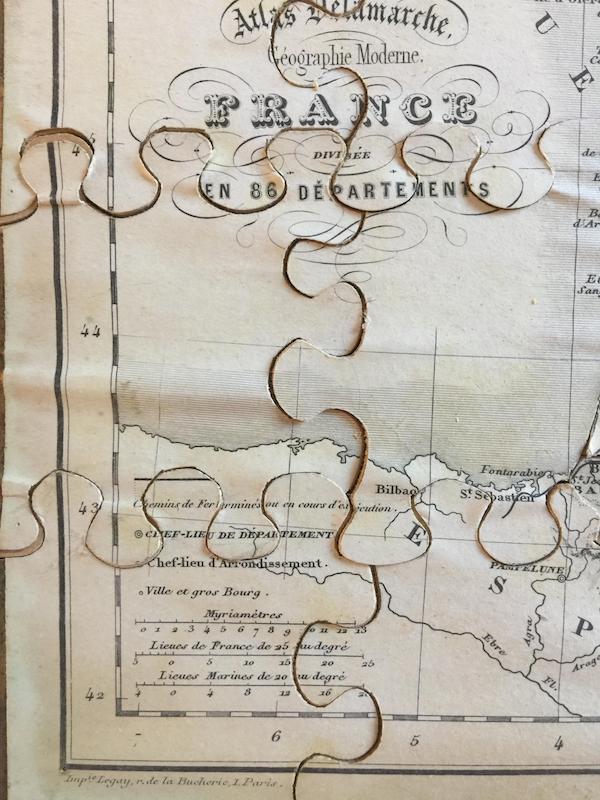 Atlas Delamarche.
Géographie Moderne.
FRANCE
DIVISÉE
EN 86 DÉPARTEMENTS
U
E
de
44
Fontarabie
St. Sébastien
Bilbao
43
Chemins de Fer terminés ou en cours d'exécution.
CHEF-LIEU DE DÉPARTEMENT
Chef-lieu d'Arrondissement.
Ville et gros Bourg.
E
S
P
PAMPELUNE
Myriamètres
0 1 2 3 4 5 6 7 8 9 10 11 12 13
Lieues de France de 25 au degré
5 0 5 10 15 20 25
Lieues Marines de 20 au degré
4 0 4 8 12 16 20
Ebre
Fl.
Arago
Agra
42
6
5
4
Imp.ie Legay, r. de la Bucherie, 1. Paris.